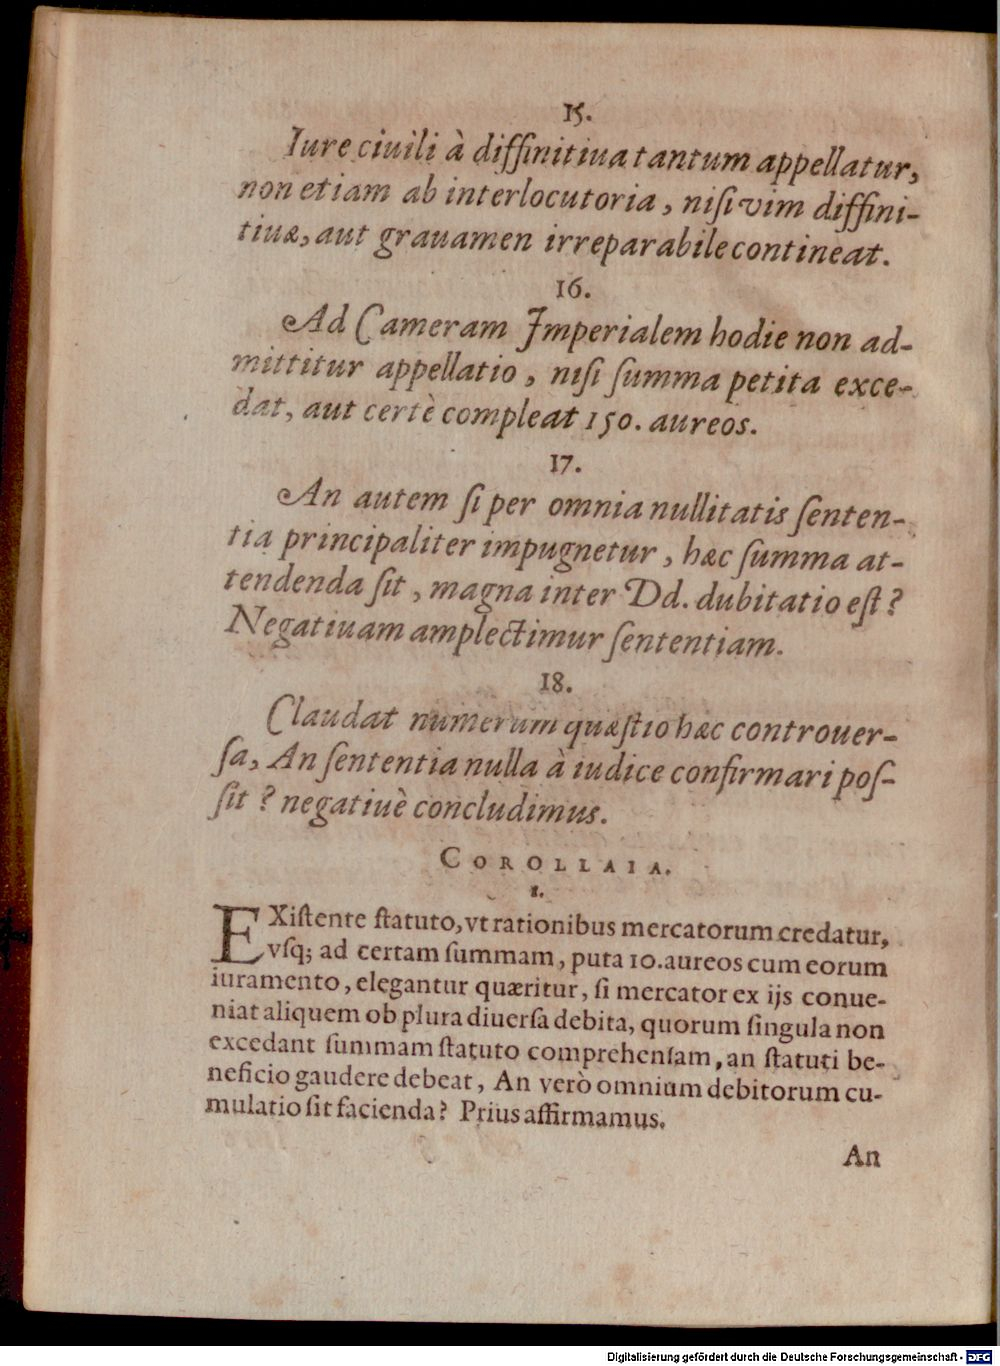 15.
Iure ciuili à diffinitiua tantum appellatur,
non etiam ab interlocutoria, niſi vim diffini-
tiuæ, aut grauamen irreparabile contineat.
16.
Ad Cameram Imperialem hodie non ad-
mittitur appellatio, niſi ſumma petita exce-
dat, aut certè compleat 150. aureos.
17.
An autem ſi per omnia nullitatis ſenten-
tia principaliter impugnetur, hæc ſumma at-
tendenda ſit, magna inter Dd. dubitatio eſt?
Negatiuam amplectimur ſententiam.
18.
Claudat numerum quæſtio hæc controuer-
ſa, An ſententia nulla à iudice confirmari poſ-
ſit? negatiuè concludimus.
COROLLAIA.
1.
EXiſtente ſtatuto, vt rationibus mercatorum credatur,
vſq; ad certam ſummam, puta 10. aureos cum eorum
iuramento, elegantur quæritur, ſi mercator ex ijs conue-
niat aliquem ob plura diuerſa debita, quorum ſingula non
excedant ſummam ſtatuto comprehenſam, an ſtatuti be-
neficio gaudere debeat, An verò omnium debitorum cu-
mulatio ſit facienda? Prius affirmamus.
An
Digitalisierung gefördert durch die Deutsche Forschungsgemeinschaft - DFG